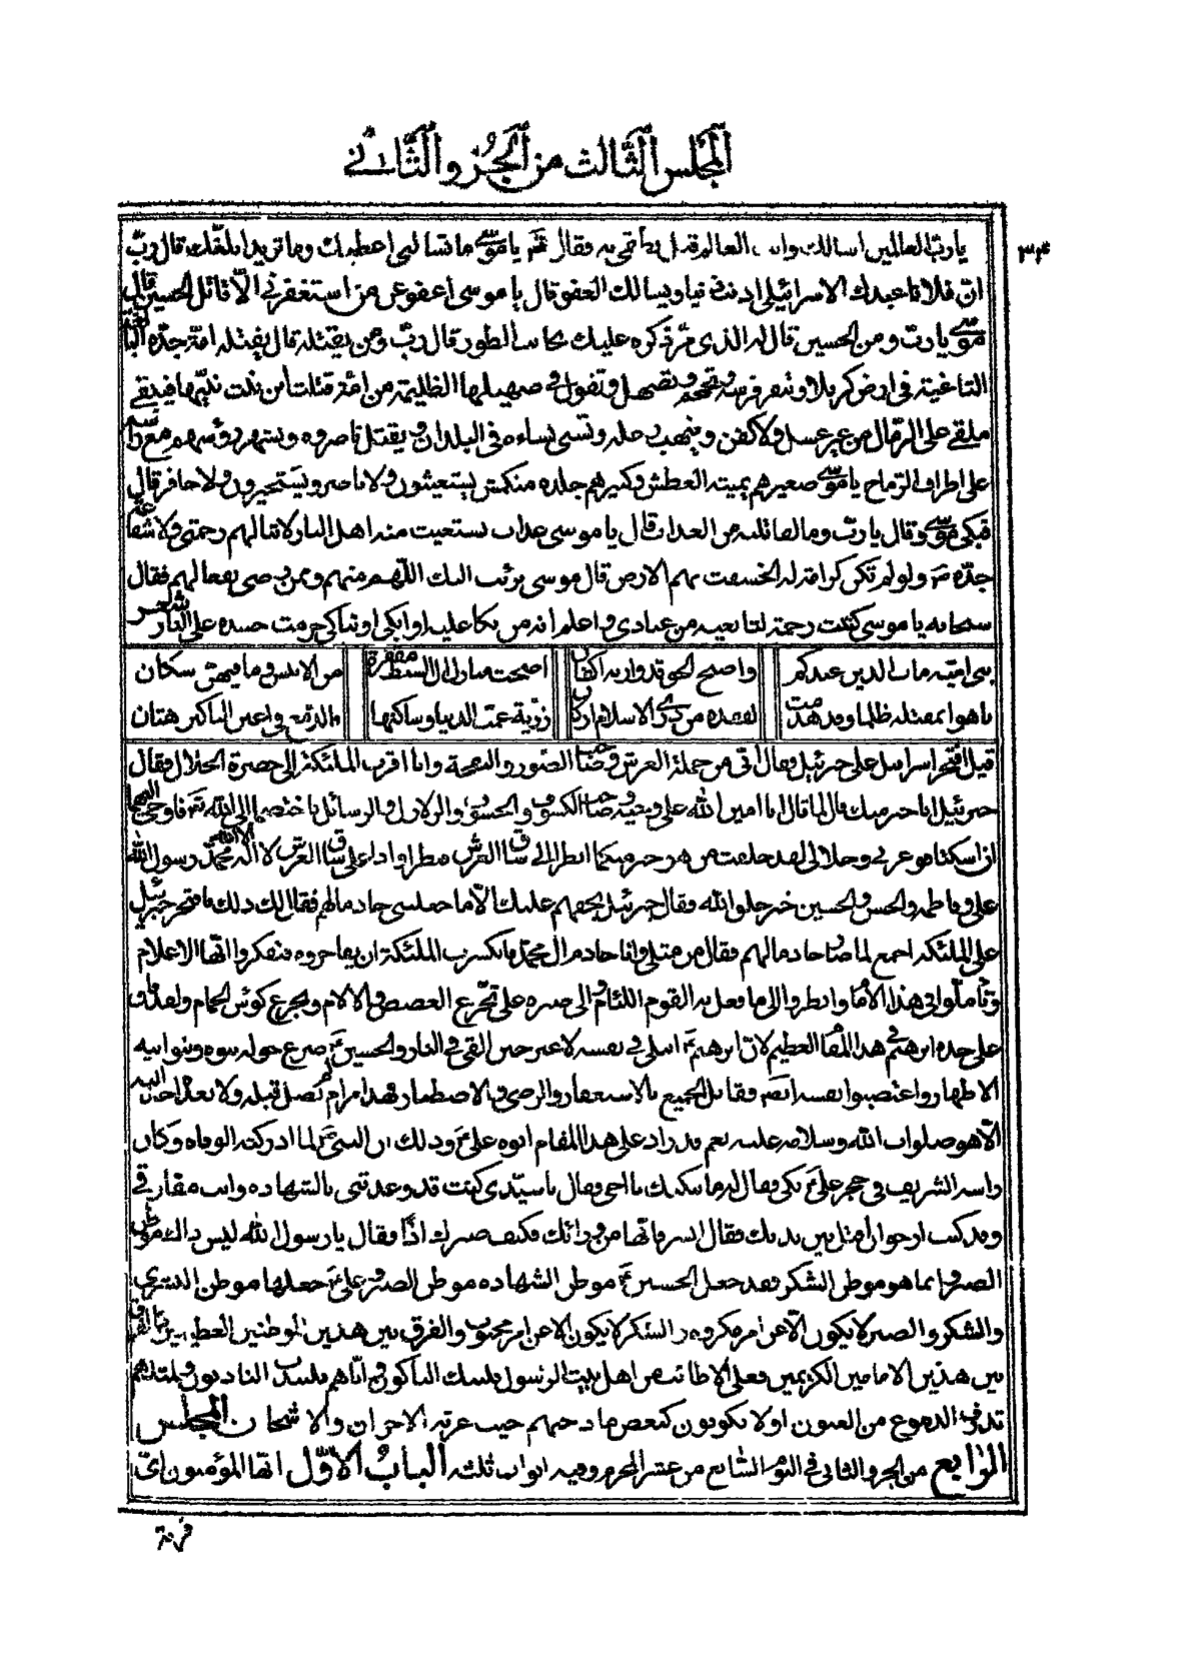 المجلس الثالث من الجزو الثاني
٣٣۴
يا ربّ العالمين اسالك وانت العالم قبل نطقي به فقال تعم يا موسى ما تسالني اعطيك وما تريد ابلغك قال ربّ
انّ فلانا عبدك الاسرائيلي اذنب ذنبا ويسالك العفو قال يا موسى اعفو عن من استغفرني الّا قاتل الحسين قال
موسى يا ربّ ومن الحسين قال له الذي مرّ ذكره عليك بجانب الطور قال ربّ ومن يقتله قال يقتله امّة جدّه الباغية
الطاغية في ارض كربلا وتنفر فرسه وتحمحم وتصهل وتقول في صهيلها الظليمة من امّة قتلت ابن بنت نبيّها فيبقى
ملقى على الرمال من غير غسل ولا كفن وينهب رحله وتسبى نساءه في البلدان ويقتل ناصروه وتشهر رؤسهم مع راسه
على اطراف الرّماح يا موسى صغيرهم يميته العطش وكبيرهم جلده منكمش يستغيثون ولا ناصر ويستجيرون ولا خافر قال
فبكى موسى وقال يا ربّ وما لقاتليه من العذاب قال يا موسى عذاب يستغيث منه اهل النار لا تنالهم رحمتي ولا شفاعة
جدّه ص ولو لم تكن كرامة له لخسفت بهم الارض قال موسى برئت اليك اللّهم منهم وممن رضي بفعالهم فقال
سبحانه يا موسى كتبت رحمة لتابعيه من عبادي واعلم انه من بكا عليه او ابكى او تباكى حرمت جسده على النار شعر
بني اميّة مات الدين عندكم واصبح الحق قد وارته اكفان اضحت منازل ال السبط مقفرة من الانس وما فيهن سكان
باهوا بمقتله ظلما وقد هدمت لفقده من ذرى الاسلام اركان رزية عمت الدنيا وساكنها فالدمع من اعين الباكين هتان
قيل افتخر اسرافيل على جبرئيل فقال انّي من حملة العرش وصاحب الصور والنفخة وانا اقرب الملئكة الى حضرة الجلال فقال
جبرئيل انا خير منك قال لماذا قال انا امين الله على وحيه وصاحب الكسوف والخسوف والزلازل والرسائل فاختصما الى الله تع فاوحى اليهما
ان اسكتا فوعزتي وجلالي لقد خلقت من هو خير منكما انظرا الى ساق العرش فنظرا واذا على ساق العرش لا اله الا الله محمّد رسول الله
علي وفاطمة والحسن والحسين خير خلق الله فقال جبرئيل بحقهم عليك الّا ما جعلتني خادما لهم فقال لك ذلك فافتخر جبرئيل
على الملئكة اجمع لما صار خادما لهم فقال من مثلي وانا خادم ال محمّد فانكسرت الملئكة ان يفاخروه فتفكروا ايّها الاعلام
وتأملوا في هذا الأمام وانظروا الى ما فعل به القوم اللئام والى صبره على تجرّع الغصص والالام وتجرع كؤس الحمام ولقد فاق
على جده ابرهيم في هذا المقام العظيم لانّ ابرهيم ع ابتلى في نفسه لا غير حين القي في النار والحسين ع صرع حوله بنوه وبنو ابيه
الاطهار واغتصبوا نفسه ايضا فقابل الجميع بالاستغفار والرضى والاصطبار فهذا مرام لم تصل قبله ولا بعده احد اليه
الّا هو صلوات الله وسلامه عليه نعم قد زاد على هذا المقام ابوه علي ع وذلك ان النبي ص لما ادركته الوفاة وكان
راسه الشريف في حجر علي ع بكى فقال له ما يبكيك يا اخي فقال يا سيّدي كنت قد وعدتني بالشهادة وانت مفارقي
وقد كنت ارجو ان اقتل بين يديك فقال ابشر فانها من ورائك فكيف صبرك اذاً فقال يا رسول الله ليس ذاك موطن
الصبر وانما هو موطن الشكر فقد جعل الحسين ع موطن الشهادة موطن الصبر وعلي ع جعلها موطن البشرى
والشكر والصبر لا يكون الّا عن امر مكروه والشكر لا يكون الا عن امر محبوب والفرق بين هذين الموطنين العظيمين كالفرق
بين هذين الامامين الكريمين فعلى الاطائب من اهل بيت الرسول فليبك الباكون وايّاهم فليندب النادبون ولمثلهم
تذرف الدموع من العيون او لا تكونون كبعض مادحيهم حيث عرته الاحزان والاشجان المجلس
الرابع من الجزو الثاني في اليوم السّابع من عشر المحرم وفيه ابواب ثلثة الباب الأوّل ايّها المؤمنون ايّ
فرقة